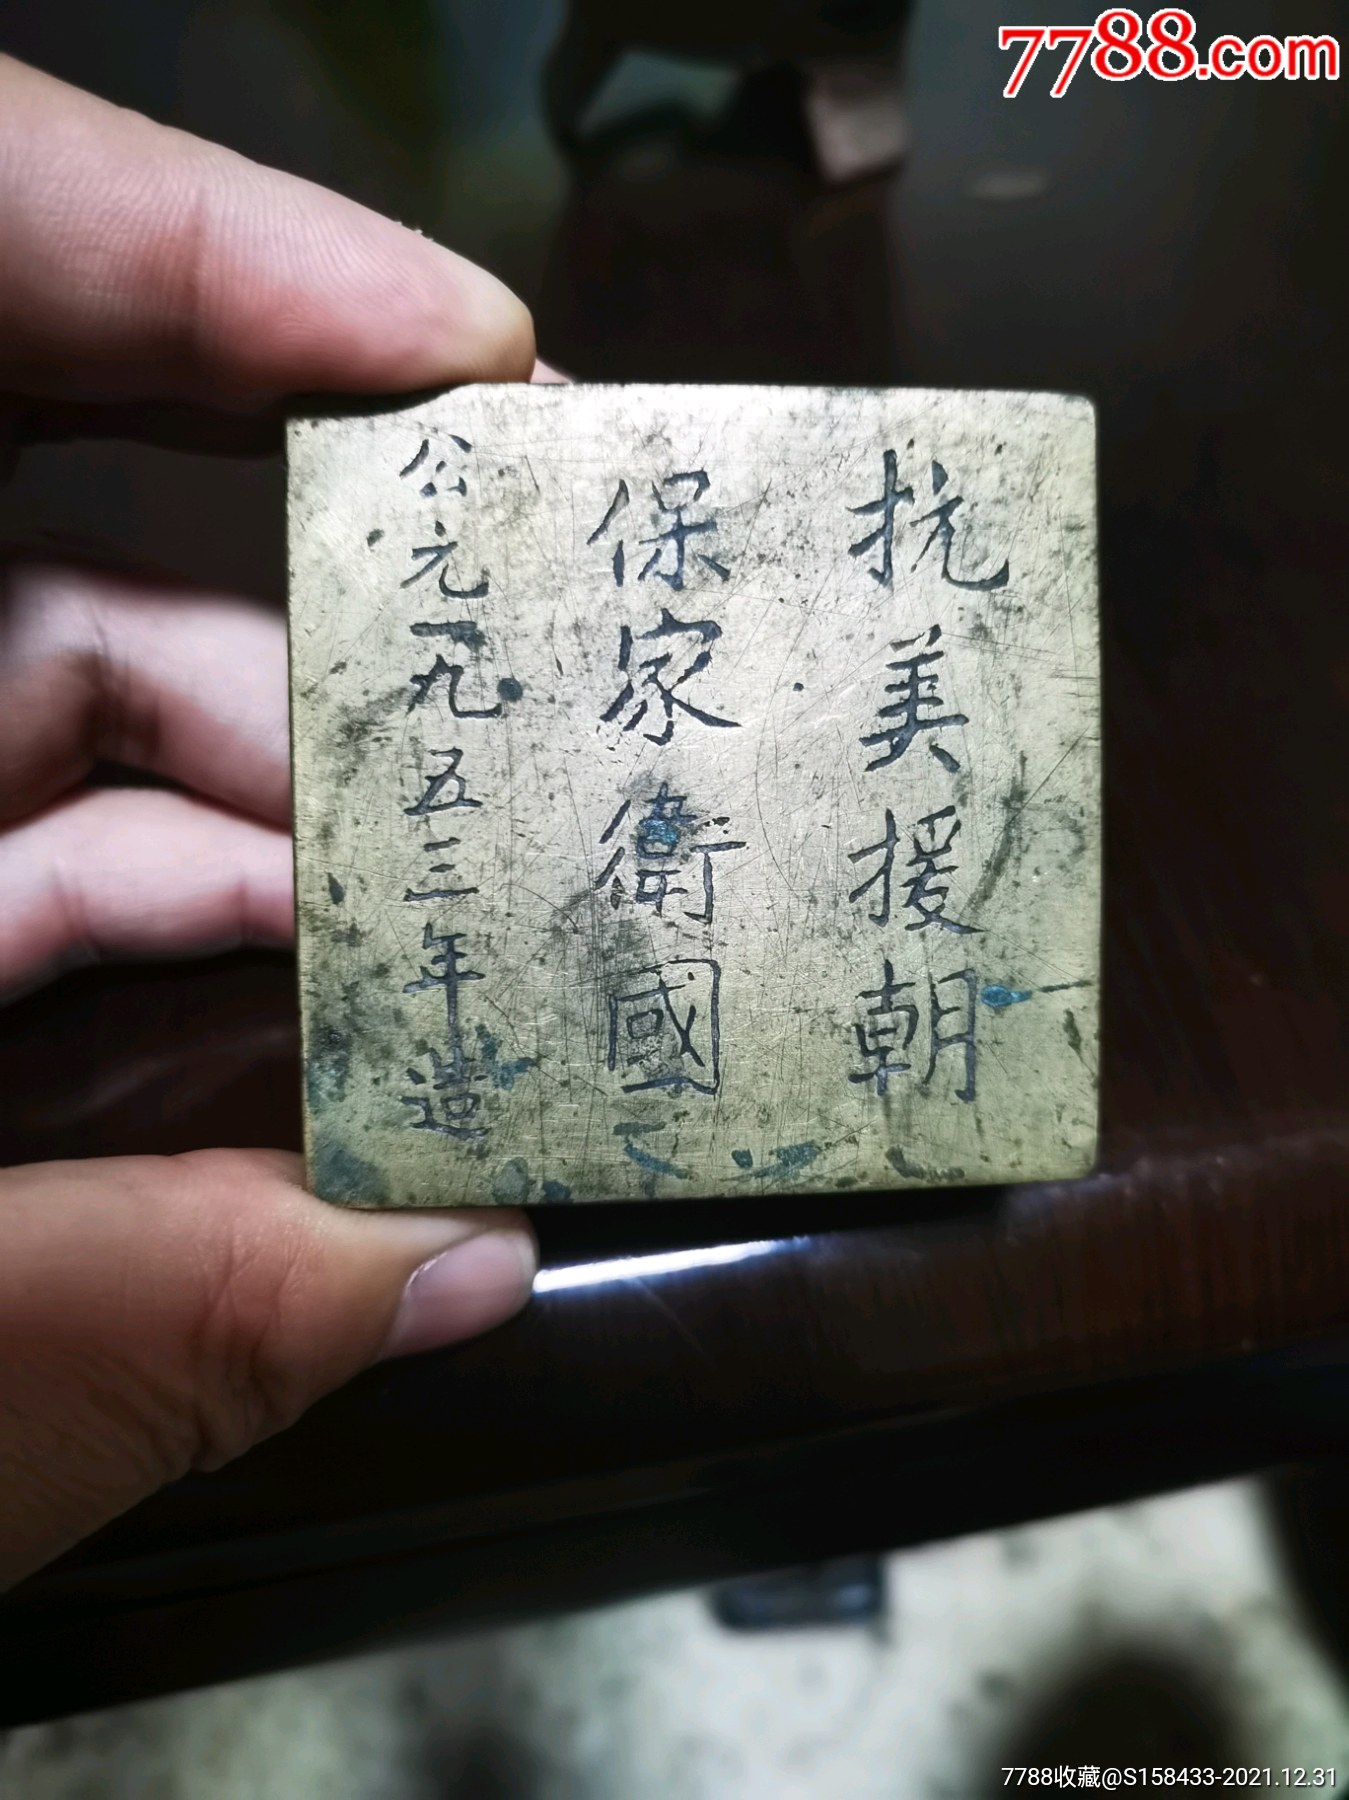 7788.com
抗美援朝
保家衛國
公元一九五三年造
7788收藏@S158433-2021.12.31